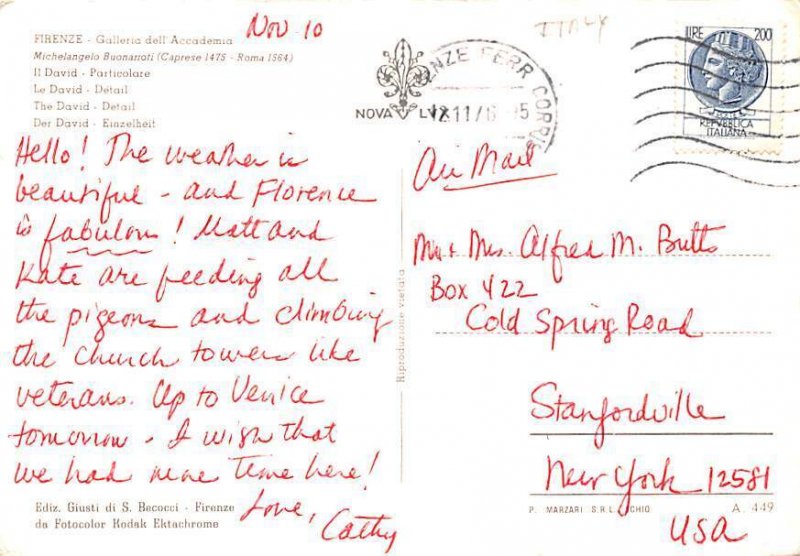 Nov 10
ITALY
FIRENZE - Galleria dell'Accademia
Michelangelo Buonarroti (Caprese 1475 - Roma 1564)
Il David - Particolare
Le David - Détail
The David - Détail
Der David - Einzelheit
NOVA LVX
12.11
LIRE 200
REPVBBLICA
ITALIANA
Hello! The weather is
beautiful - and Florence
is fabulous! Matt and
Kate are feeding all
the pigeons and climbing
the church towers like
veterans. Up to Venice
tomorrow - I wish that
we had more time here!
Love,
Cathy
Air Mail
Mr + Mrs. Alfred M. Butts
Box 422
Cold Spring Road
Stanfordville
New York 12581
USA
Riproduzione vietata
Ediz. Giusti di S. Becocci - Firenze
da Fotocolor Kodak Ektachrome
P. MARZARI S.R.L. SCHIO
A. 449